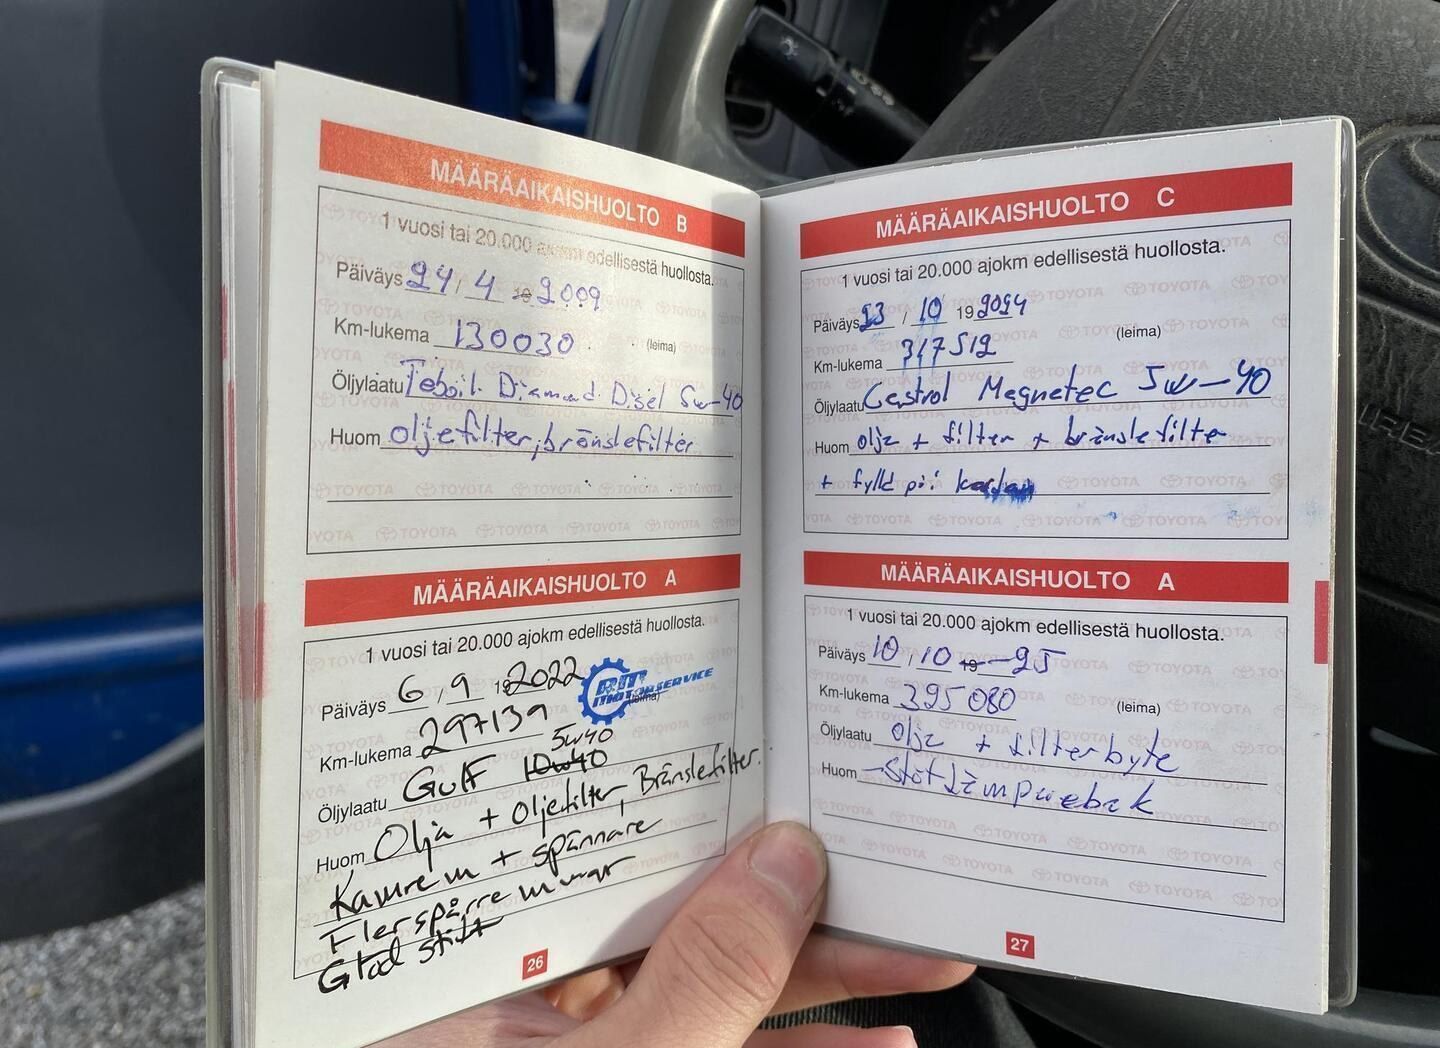 MÄÄRÄAIKAISHUOLTO B
1 vuosi tai 20.000 ajokm edellisestä huollosta.
Päiväys 24 / 4 19 2009
Km-lukema 130030 (leima)
Öljylaatu Teboil Diamond Disel 5w-40
Huom oljefilter, bränslefilter
MÄÄRÄAIKAISHUOLTO A
1 vuosi tai 20.000 ajokm edellisestä huollosta.
Päiväys 6 / 9 19 2022
RM MOTORSERVICE
Km-lukema 297139 (leima)
5w40
Öljylaatu Gulf 10w40
Huom Olja + Oljefilter, Bränslefilter.
Kamrem + spännare
Glöd stift
26
MÄÄRÄAIKAISHUOLTO C
1 vuosi tai 20.000 ajokm edellisestä huollosta.
Päiväys 23 / 10 19 2024
Km-lukema 317512 (leima)
Öljylaatu Castrol Magnetec 5w-40
Huom olja + filter + bränslefilter
+ fylld på kardan
MÄÄRÄAIKAISHUOLTO A
1 vuosi tai 20.000 ajokm edellisestä huollosta.
Päiväys 10 / 10 19 -25
Km-lukema 325080 (leima)
Öljylaatu Olja + filterbyte
Huom -Stötdämpare bak
27
TOYOTA